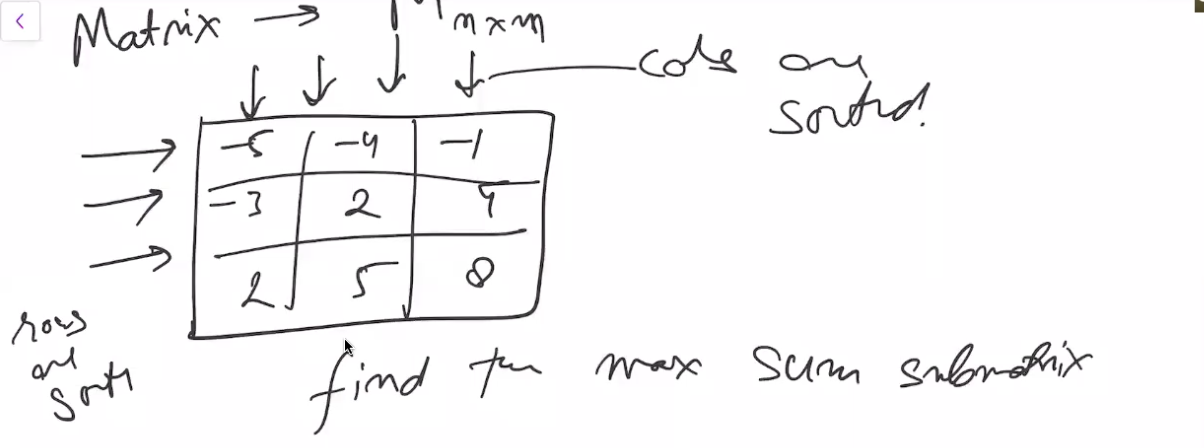 Matrix → M n x m
cols are
sorted!
-5 -4 -1
-3 2 4
2 5 8
rows
are
sorted
find the max sum submatrix